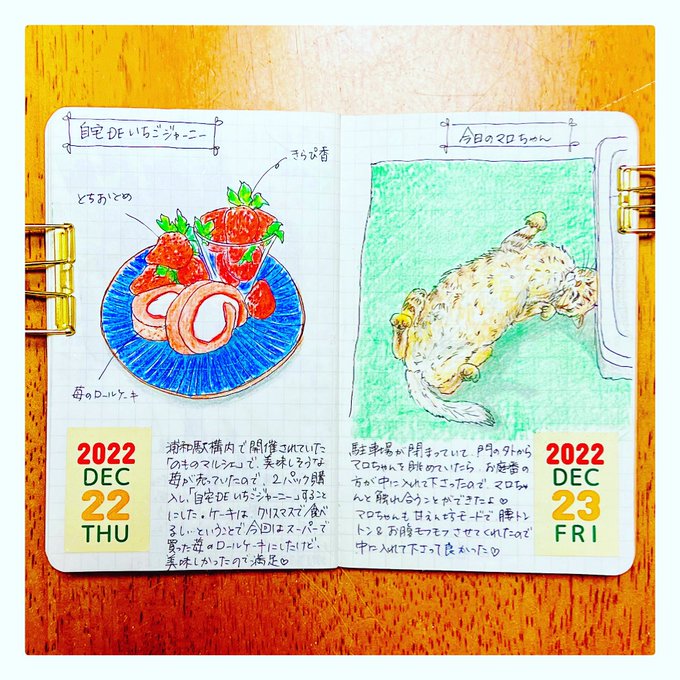 自宅DEいちごジャーニー
きらぴ香
とちおとめ
苺のロールケーキ
2022
DEC
22
THU
浦和駅構内で開催されていた
「のものマルシェ」で、美味しそうな
苺が売っていたので、2パック購
入し、「自宅DEいちごジャーニー」すること
にした。ケーキは、クリスマスで食べ
るし…ということで今回はスーパーで
買った苺のロールケーキにしたけど、
美味しかったので満足♡
今日のマロちゃん
駐車場が閉まっていて、門の外から
マロちゃんを眺めていたら、お庭番の
方が中に入れて下さったので、マロちゃ
んと触れ合うことができたよ♡
マロちゃんも甘えん坊モードで腰トン
トン&お腹モフモフさせてくれたので
中に入れて下さって良かった♡
2022
DEC
23
FRI